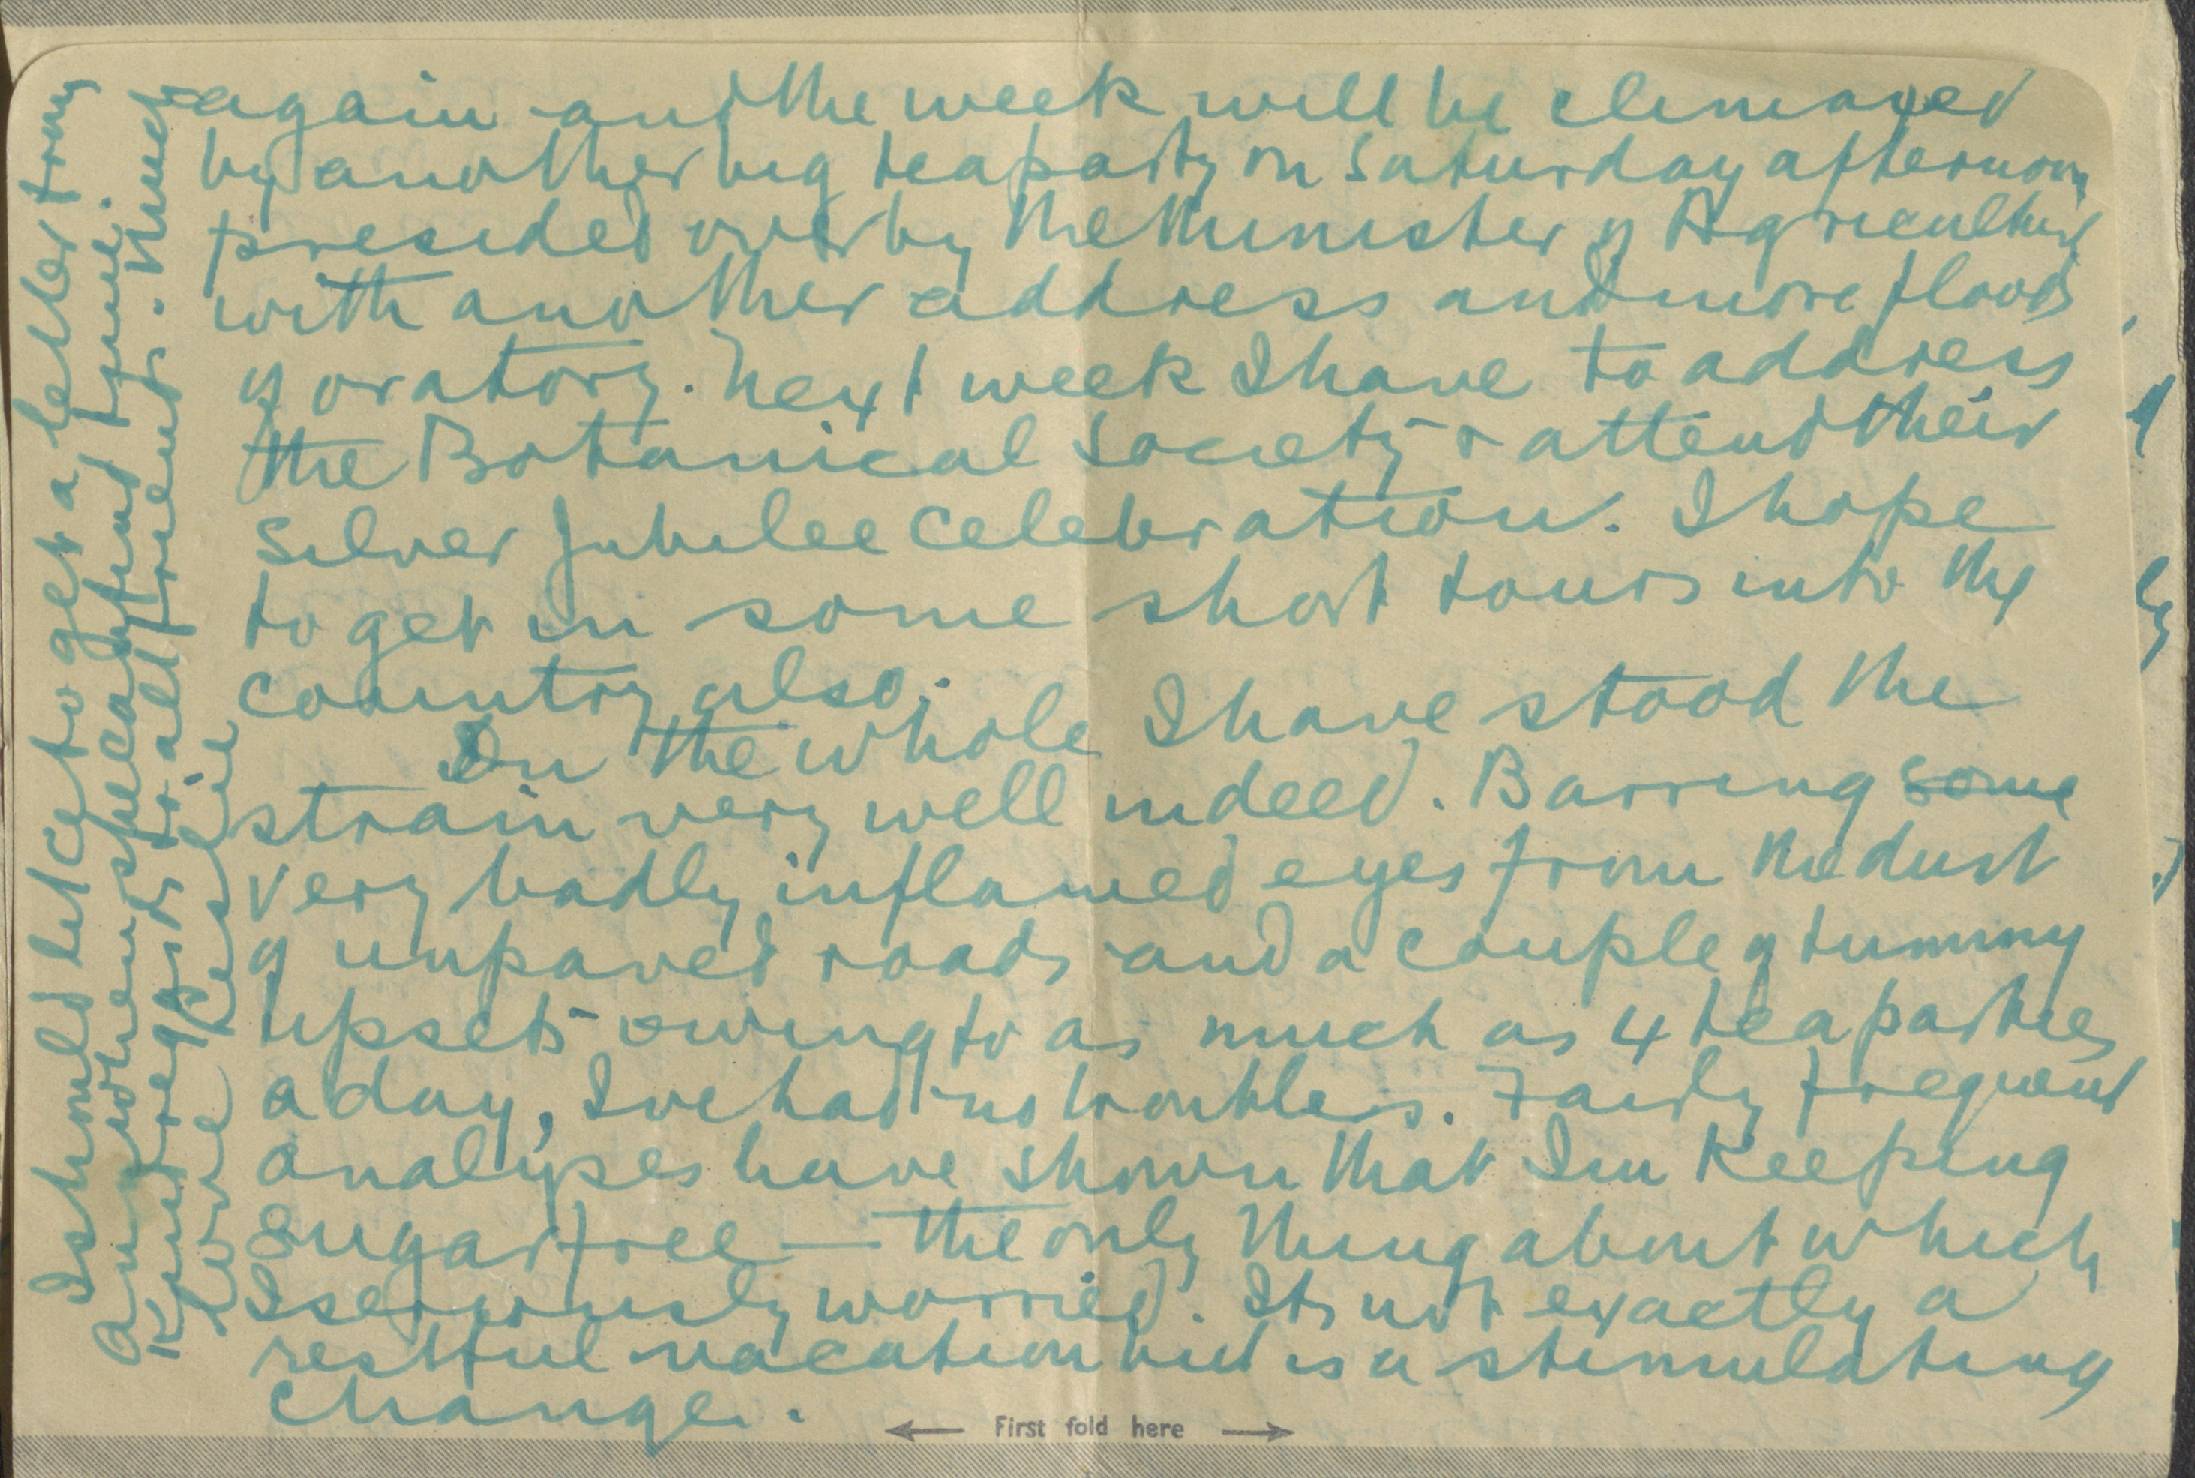 again and the week will be climaxed
by another big teaparty on Saturday afternoon
presided over by the Minister of Agriculture
with another address and more floods
of oratory. Next week I have to address
the Botanical Society & attend their
Silver Jubilee Celebration. I hope
to get in some short tours into the
country also.
On the whole I have stood the
strain very well indeed. Barring some
very badly inflamed eyes from the dust
of unpaved roads and a couple of tummy
upsets owing to as much as 4 teaparties
a day, I've had no troubles. Fairly frequent
analyses have shown that I'm keeping
sugarfree — the only thing about which
I seriously worried. Its not exactly a
restful vacation but is a stimulating
change.
I should like to get a letter from
Amy when she can find time.
Kind regards to all friends. Much
love Leslie
First fold here